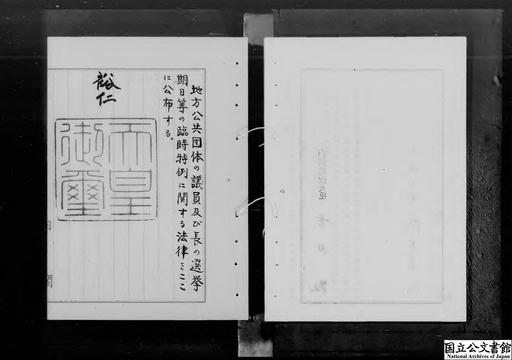 地方公共団体の議員及び長の選挙
期日等の臨時特例に関する法律をここ
に公布する。
裕仁
天皇
御璽
内閣
国立公文書館
National Archives of Japan